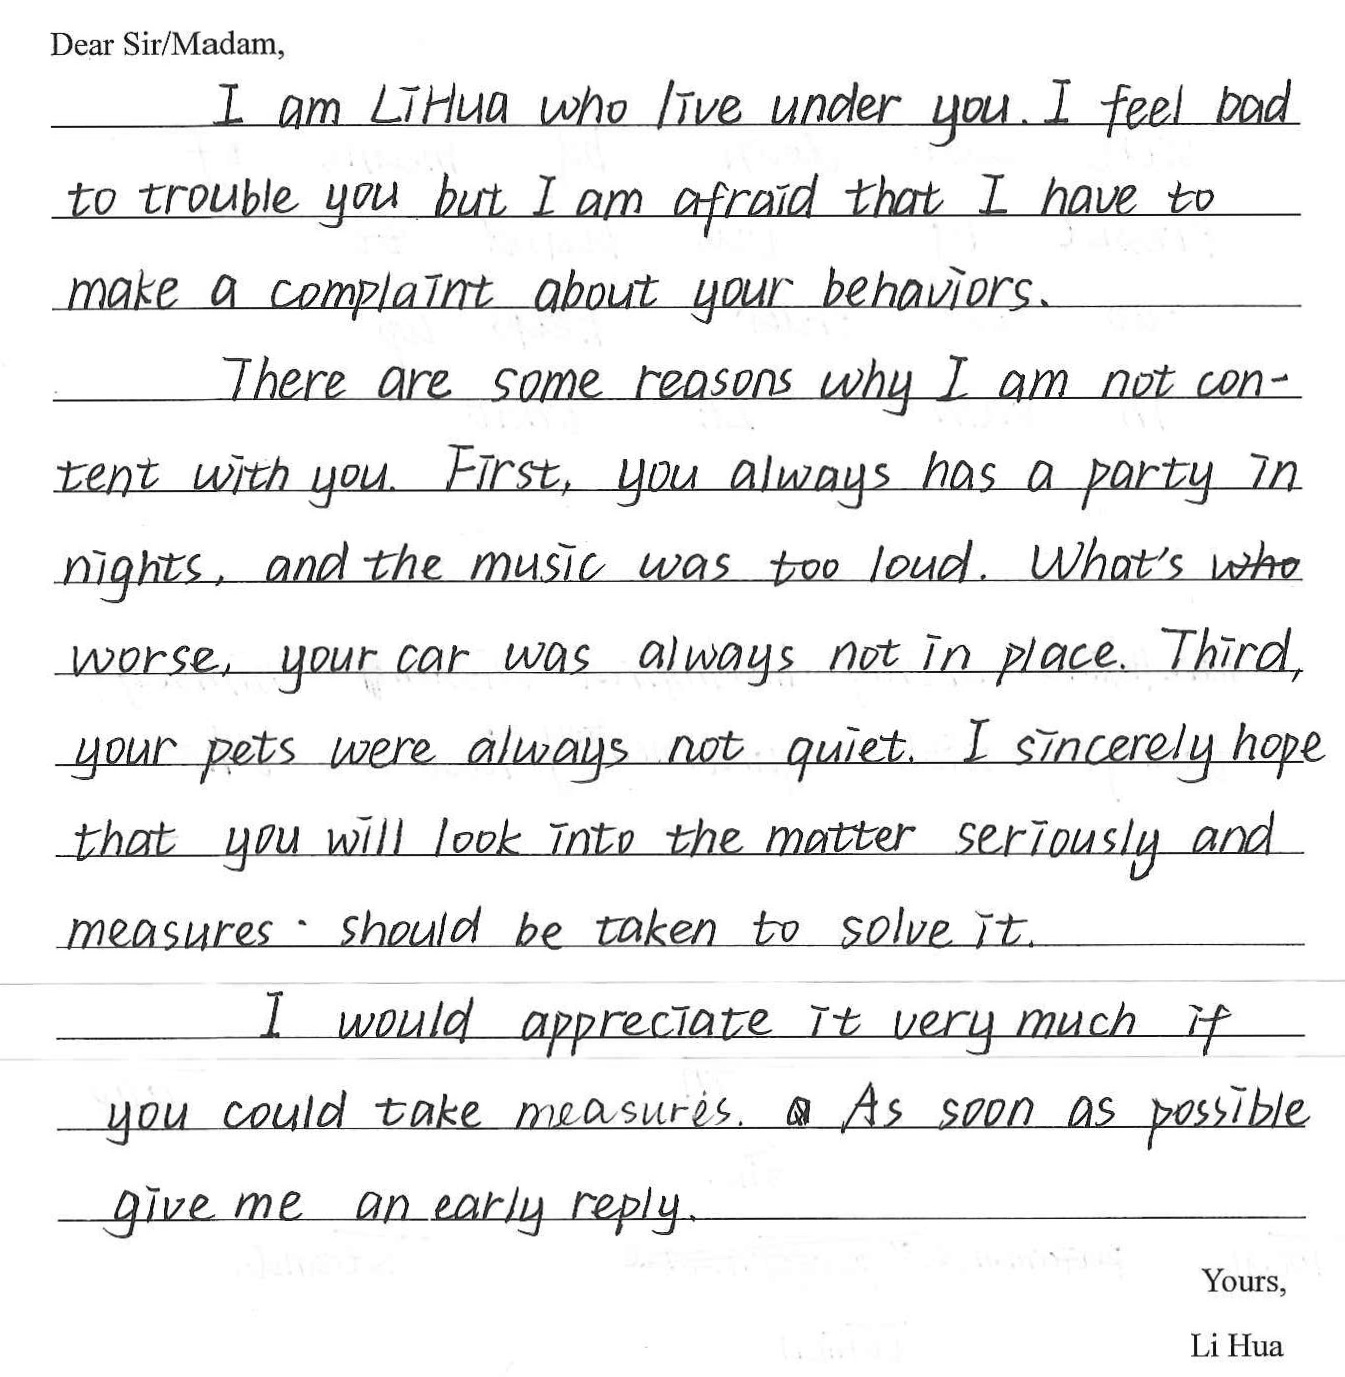 Dear Sir/Madam,
I am LiHua who live under you. I feel bad
to trouble you but I am afraid that I have to
make a complaint about your behaviors.
There are some reasons why I am not con-
tent with you. First, you always has a party in
nights, and the music was too loud. What's who
worse, your car was always not in place. Third,
your pets were always not quiet. I sincerely hope
that you will look into the matter seriously and
measures should be taken to solve it.
I would appreciate it very much if
you could take measures. As soon as possible
give me an early reply.
Yours,
Li Hua